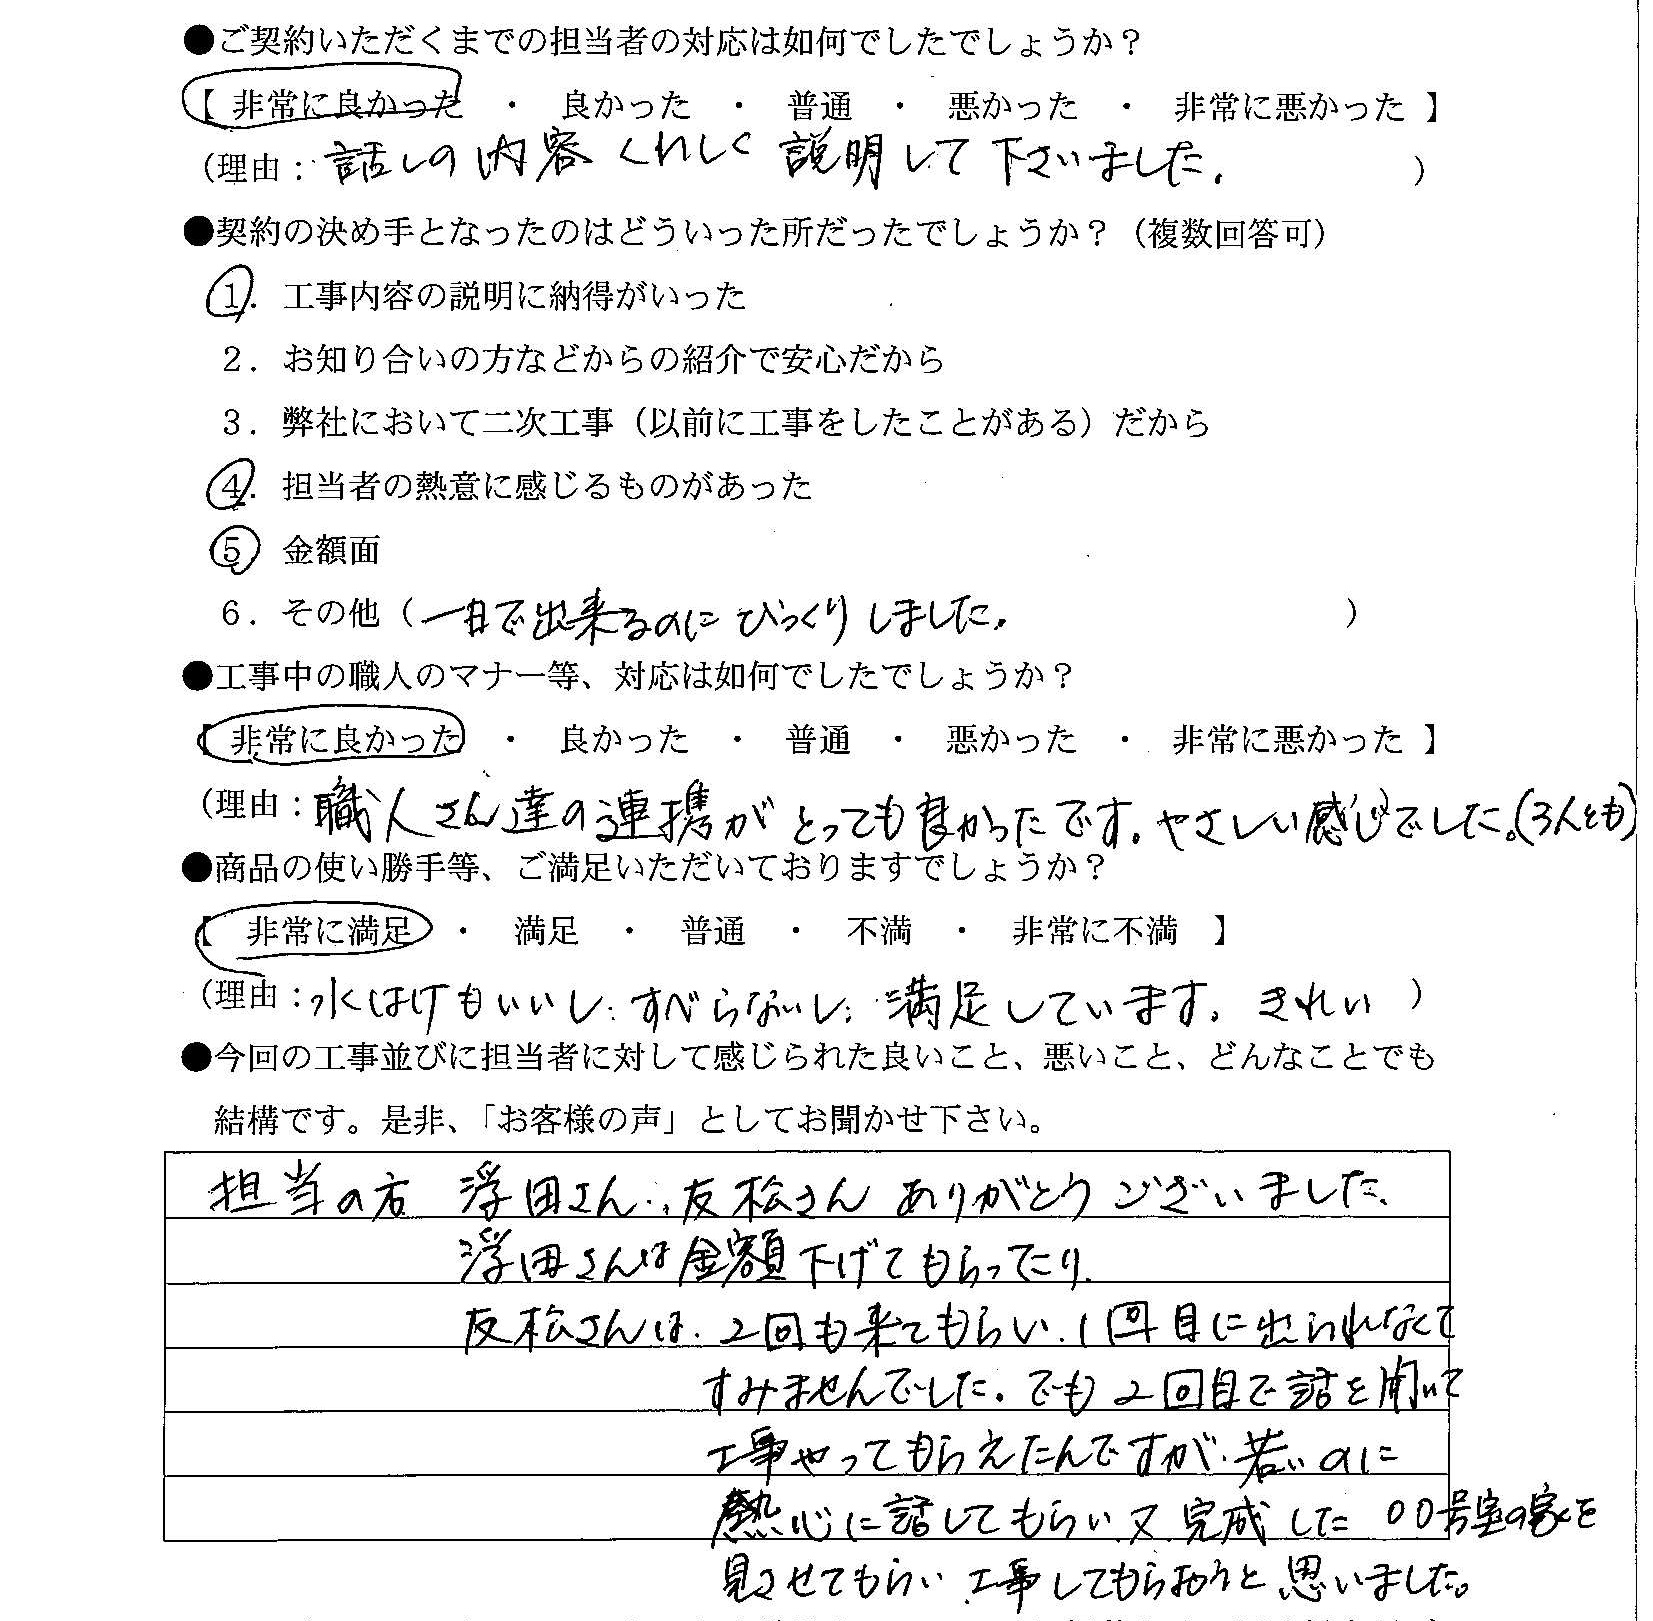 ●ご契約いただくまでの担当者の対応は如何でしたでしょうか？
【 非常に良かった ・ 良かった ・ 普通 ・ 悪かった ・ 非常に悪かった 】
（理由：話しの内容くわしく説明して下さいました. ）
●契約の決め手となったのはどういった所だったでしょうか？（複数回答可）
1．工事内容の説明に納得がいった
2．お知り合いの方などからの紹介で安心だから
3．弊社において二次工事（以前に工事をしたことがある）だから
4．担当者の熱意に感じるものがあった
5 金額面
6．その他（一日で出来るのにびっくりしました。 ）
●工事中の職人のマナー等、対応は如何でしたでしょうか？
【 非常に良かった ・ 良かった ・ 普通 ・ 悪かった ・ 非常に悪かった 】
（理由：職人さん達の連携がとっても良かったです。やさしい感じでした。(3人とも)
●商品の使い勝手等、ご満足いただいておりますでしょうか？
【 非常に満足 ・ 満足 ・ 普通 ・ 不満 ・ 非常に不満 】
（理由：水はけもいいし、すべらないし、満足しています。きれい ）
●今回の工事並びに担当者に対して感じられた良いこと、悪いこと、どんなことでも
結構です。是非、「お客様の声」としてお聞かせ下さい。
担当の方 浮田さん、友松さん ありがとうございました、
浮田さんは金額下げてもらったり、
友松さんは、2回も来てもらい、1回目に出られなくて
すみませんでした。でも2回目で話を聞いて
工事やってもらえたんですが、若いのに
熱心に話してもらい又完成した〇〇号室の家を
見させてもらい、工事してもらおうと思いました。